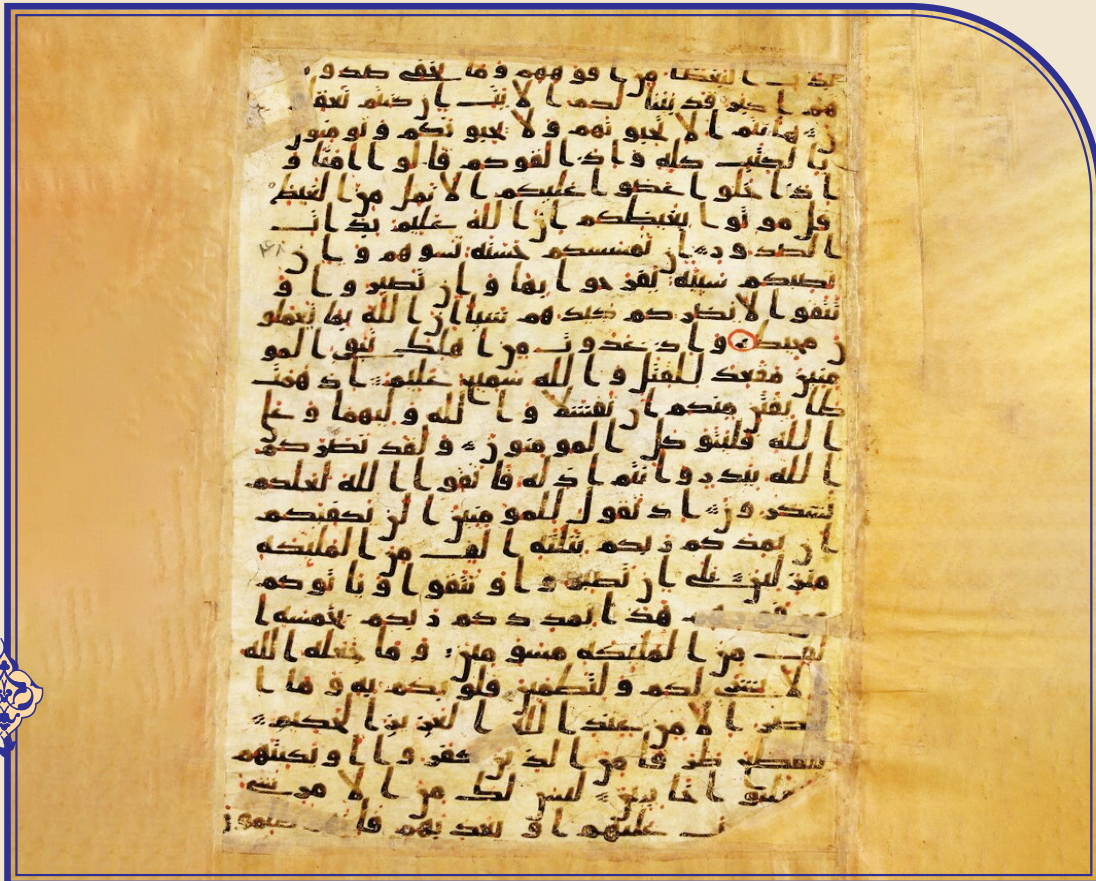 قد بدت البغضا من افوههم وما تخفى صدو
رهم اكبر قد بينا لكم الايت ان كنتم تعقلو
ن هانتم اولا تحبونهم ولا يحبونكم وتومنون
بالكتب كله واذا لقوكم قالوا امنا و
اذا خلوا عضوا عليكم الانمل من الغيظ
قل موتوا بغيظكم ان الله عليم بذات
الصدور ان تمسسكم حسنه تسوهم وان
تصبكم سيئه يفرحوا بها وان تصبروا و
تتقوا لا يضركم كيدهم شيا ان الله بما يعملو
ن محيط واذ غدوت من اهلك تبوى المو
منين مقعد للقتل والله سميع عليم اذ همت
طائفتن منكم ان تفشلا والله وليهما وعلى
الله فليتوكل المومنون ولقد نصركم
الله ببدر وانتم اذله فاتقوا الله لعلكم
تشكرون اذ تقول للمومنين الن يكفيكم
ان يمدكم ربكم بثلثه الف من الملئكه
منزلين بلى ان تصبروا وتتقوا وياتوكم
من فورهم هذا يمددكم ربكم بخمسه ا
لف من الملئكه مسومين وما جعله الله
الا بشرى لكم ولتطمئن قلوبكم به وما ا
لنصر الا من عند الله العزيز الحكيم
ليقطع طرفا من الذين كفروا او يكبتهم
فينقلبوا خائبين ليس لك من الامر شى
يتوب عليهم او يعذبهم فانهم ظلمون